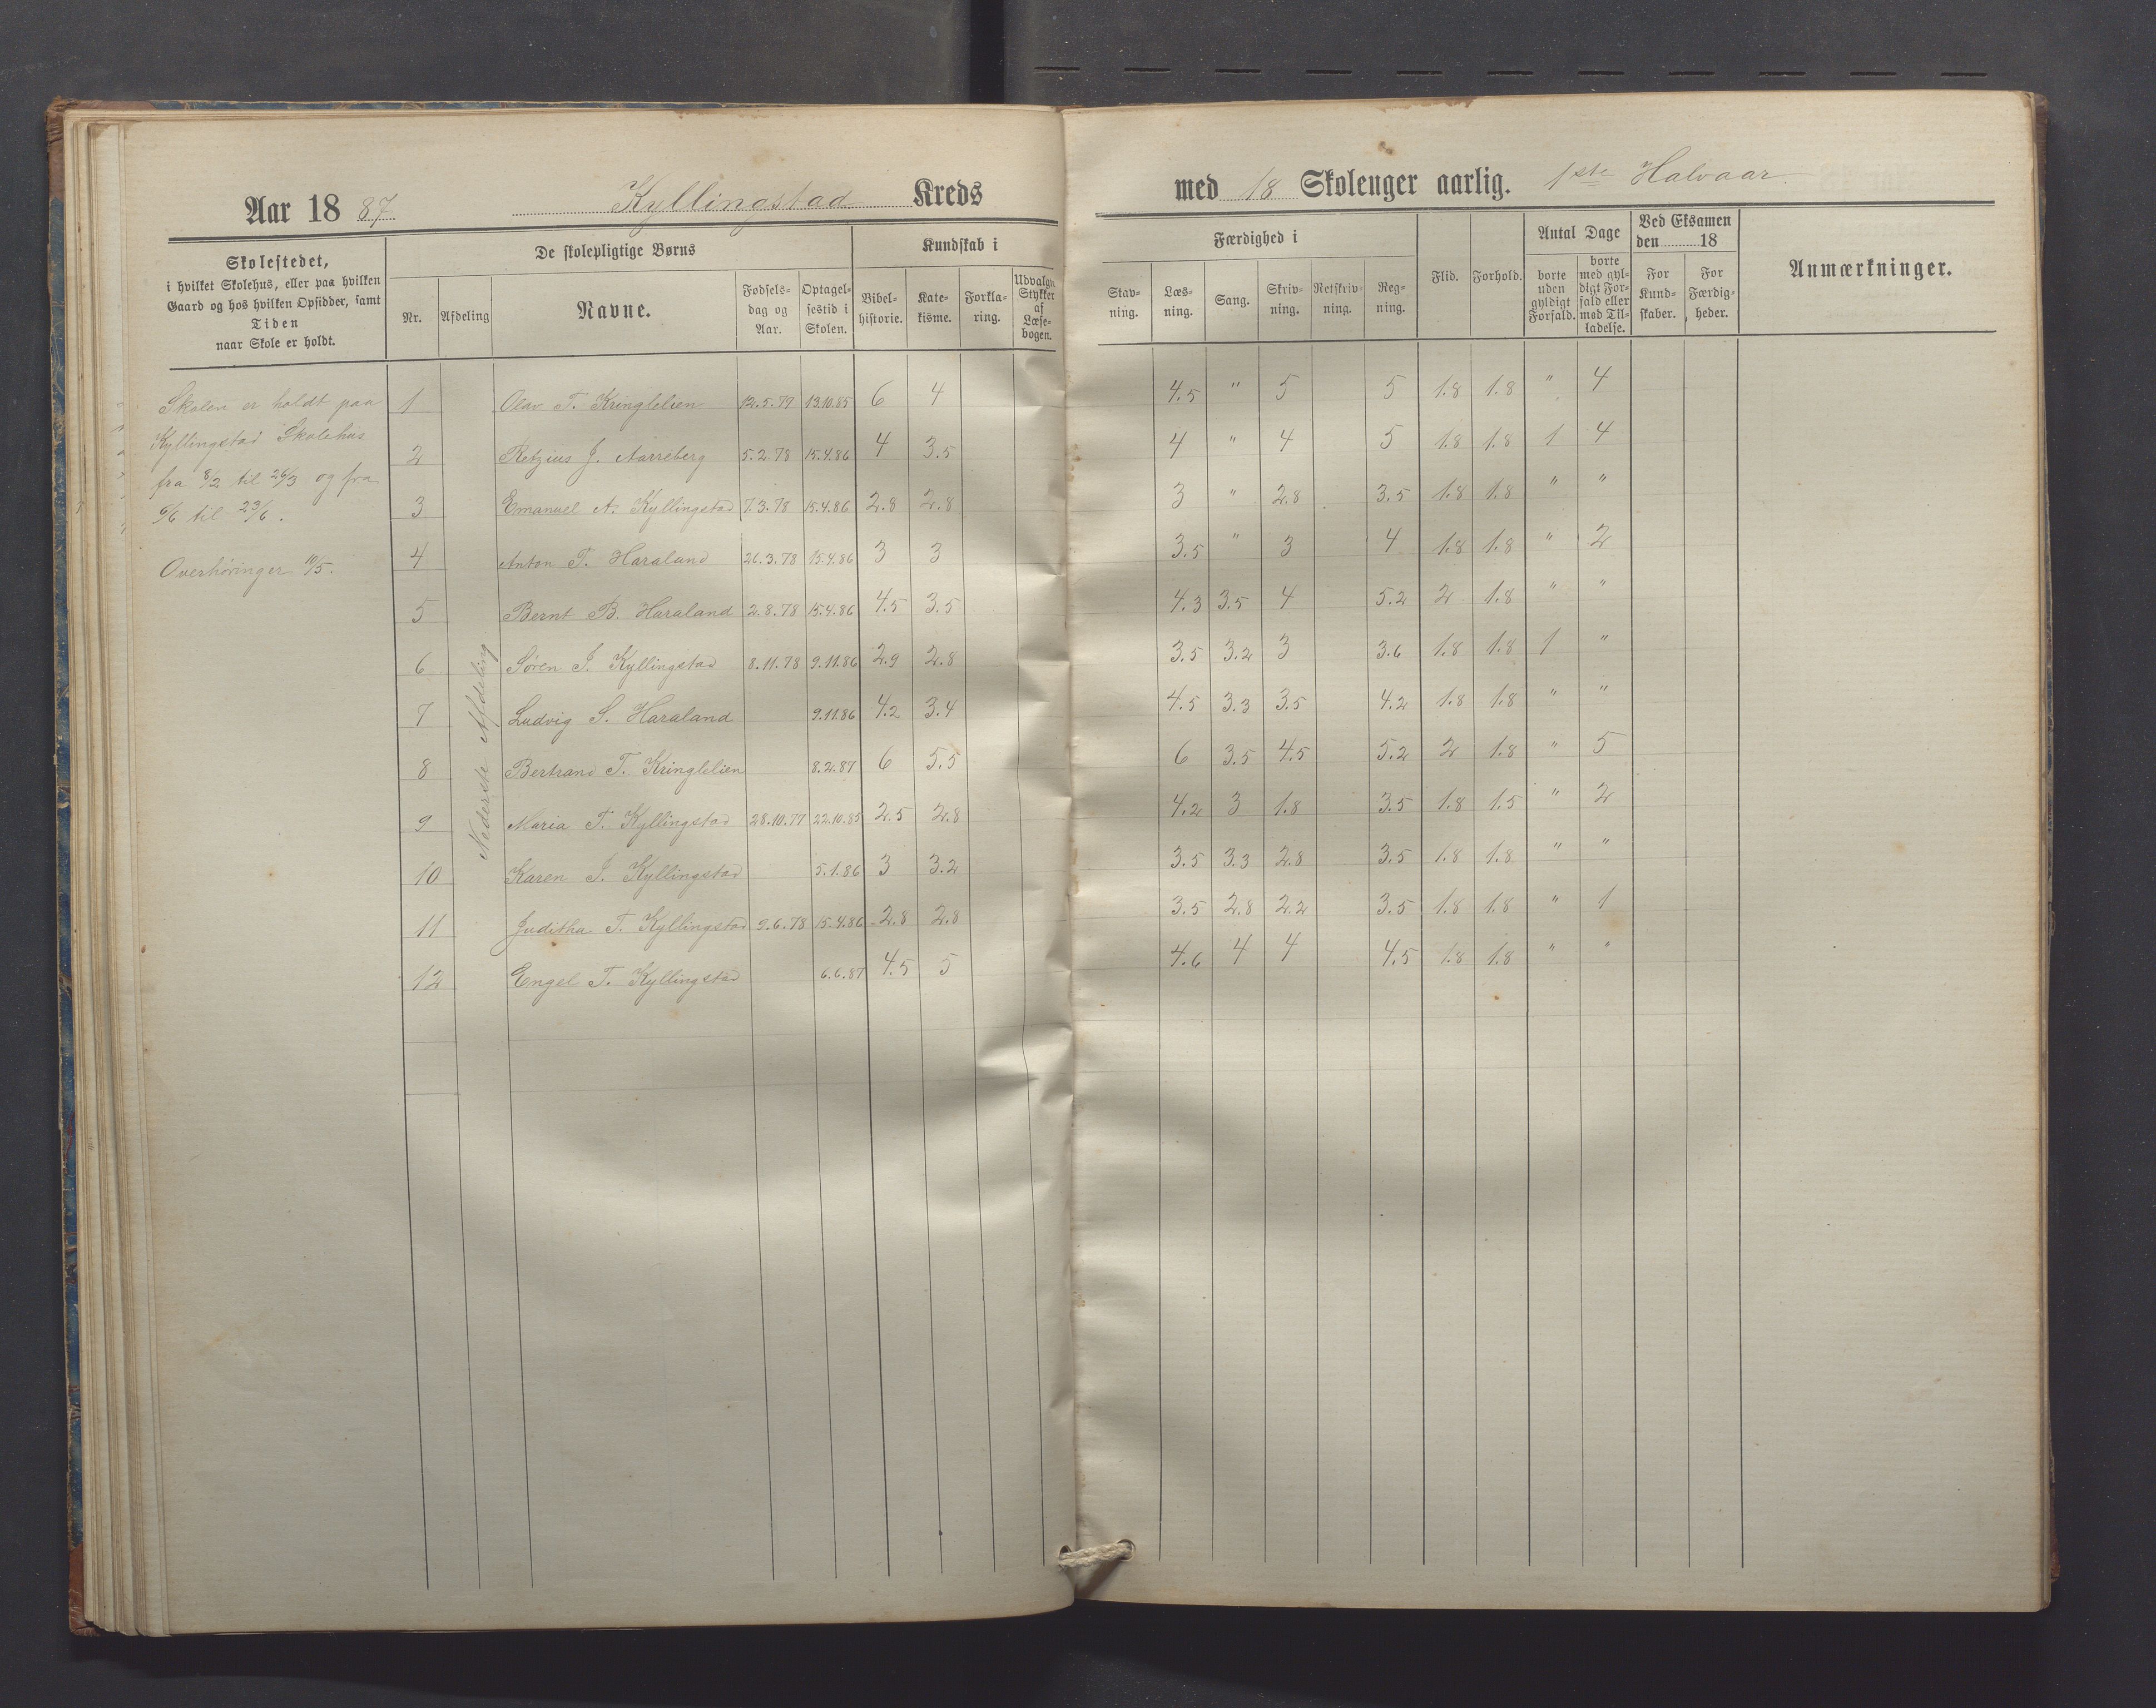 Aar 1887. Kyllingstad Kreds med 18 Skoleuger aarlig. 1ste Halvaar
Skolestedet,
i hvilket Skolehus, eller paa hvilken
Gaard og hos hvilken Opsidder, samt
Tiden
naar Skole er holdt.
De skolepligtige Børns
Nr.
Afdeling
Navne.
Fødsels-
dag og
Aar.
Optagel-
sestid i
Skolen.
Kundskab i
Bibel-
historie.
Kate-
kisme.
Forkla-
ring.
Udvalgte
Stykker
af
Læse-
bogen.
Færdighed i
Stav-
ning.
Læs-
ning.
Sang.
Skriv-
ning.
Retskriv-
ning.
Reg-
ning.
Flid.
Forhold.
Antal Dage
borte
uden
gyldigt
Forfald.
borte
med gyl-
digt For-
fald eller
med Til-
ladelse.
Ved Eksamen
den 18
For
Kund-
skaber.
For
Færdig-
heder.
Anmærkninger.
Skolen er holdt paa
Kyllingstad Skolehus
fra 8/2 til 26/3 og fra
6/6 til 23/6.
Overhøringer 10/5.
Nederste Afdeling
1 Olav T. Kringlelien 12.5.79 13.10.85 6 4 4.5 " 5 5 1.8 1.8 " 4
2 Retzius J. Aarreberg 5.2.78 15.4.86 4 3.5 4 " 4 5 1.8 1.8 1 4
3 Emanuel A. Kyllingstad 7.3.78 15.4.86 2.8 2.8 3 " 2.8 3.5 1.8 1.8 " "
4 Anton T. Haraland 26.3.78 15.4.86 3 3 3.5 " 3 4 1.8 1.8 " 2
5 Bernt B. Haraland 2.8.78 15.4.86 4.5 3.5 4.3 3.5 4 5.2 2 1.8 " "
6 Søren J. Kyllingstad 8.11.78 9.11.86 2.9 2.8 3.5 3.2 3 3.6 1.8 1.8 1 "
7 Ludvig S. Haraland 9.11.86 4.2 3.4 4.5 3.3 3.5 4.2 1.8 1.8 " "
8 Bertrand T. Kringlelien 8.2.87 6 5.5 6 3.5 4.5 5.2 2 1.8 " 5
9 Maria T. Kyllingstad 28.10.77 22.10.85 2.5 2.8 4.2 3 1.8 3.5 1.8 1.5 " 2
10 Karen J. Kyllingstad 5.1.86 3 3.2 3.5 3.3 2.8 3.5 1.8 1.8 " "
11 Juditha T. Kyllingstad 9.6.78 15.4.86 2.8 2.8 3.5 2.8 2.2 3.5 1.8 1.8 " 1
12 Engel T. Kyllingstad 6.6.87 4.5 5 4.6 4 4 4.5 1.8 1.8 " "